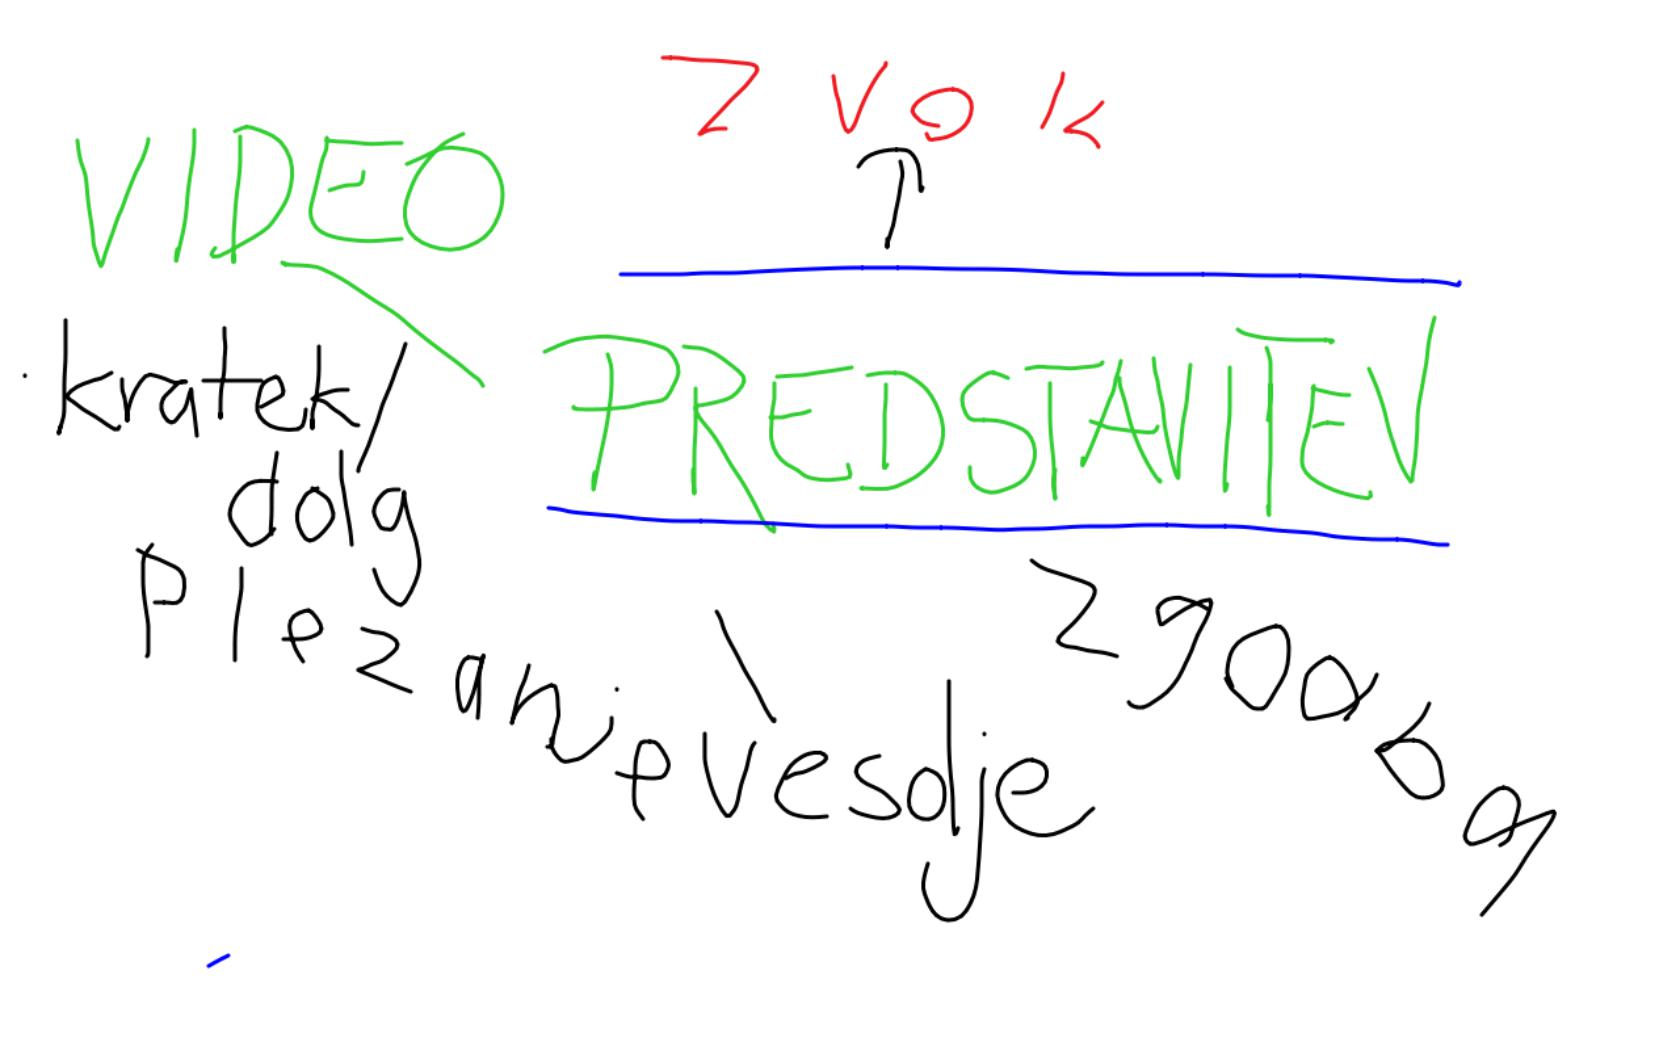 zvok
VIDEO
kratek/
dolg
PREDSTAVITEV
Plezanje
vesolje